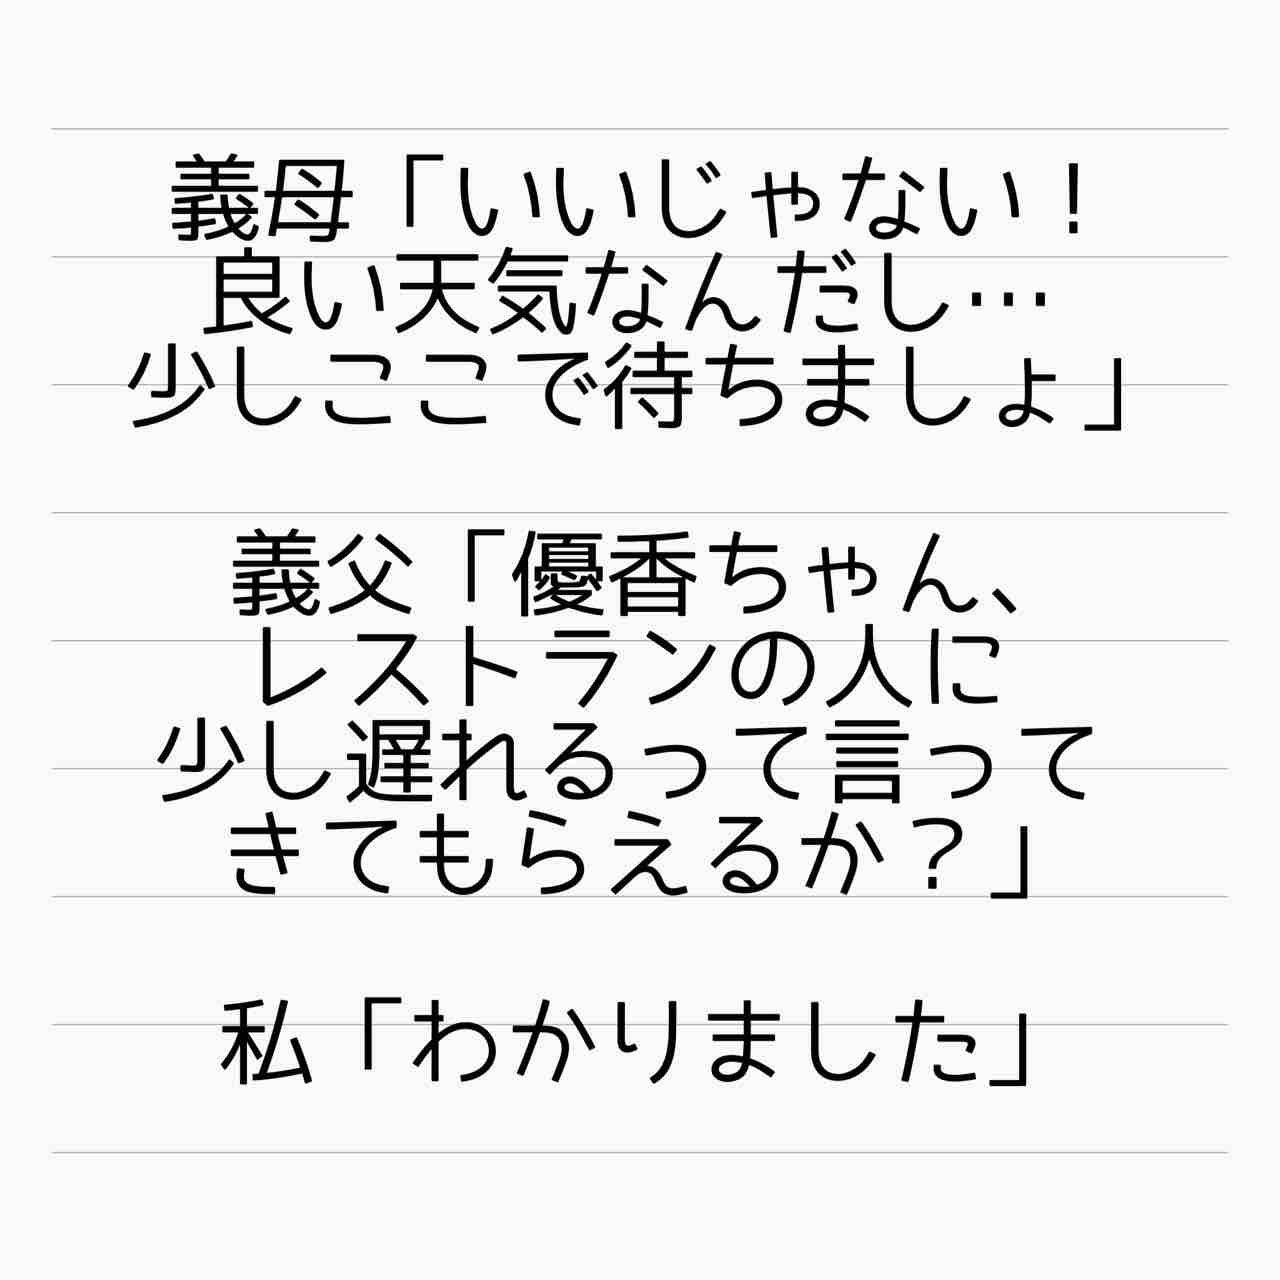 義母「いいじゃない！
良い天気なんだし…
少しここで待ちましょ」
義父「優香ちゃん、
レストランの人に
少し遅れるって言って
きてもらえるか？」
私「わかりました」